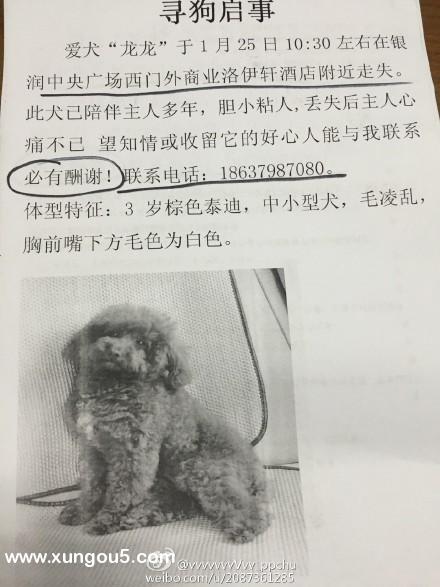 寻狗启事
爱犬“龙龙”于1月25日10:30左右在银
润中央广场西门外商业洛伊轩酒店附近走失。
此犬已陪伴主人多年，胆小粘人,丢失后主人心
痛不已 望知情或收留它的好心人能与我联系
必有酬谢！联系电话：18637987080。
体型特征：3 岁棕色泰迪，中小型犬，毛凌乱，
胸前嘴下方毛色为白色。
www.xungou5.com
@vvwvvwVvv_ppchu
weibo.com/u/2087361285